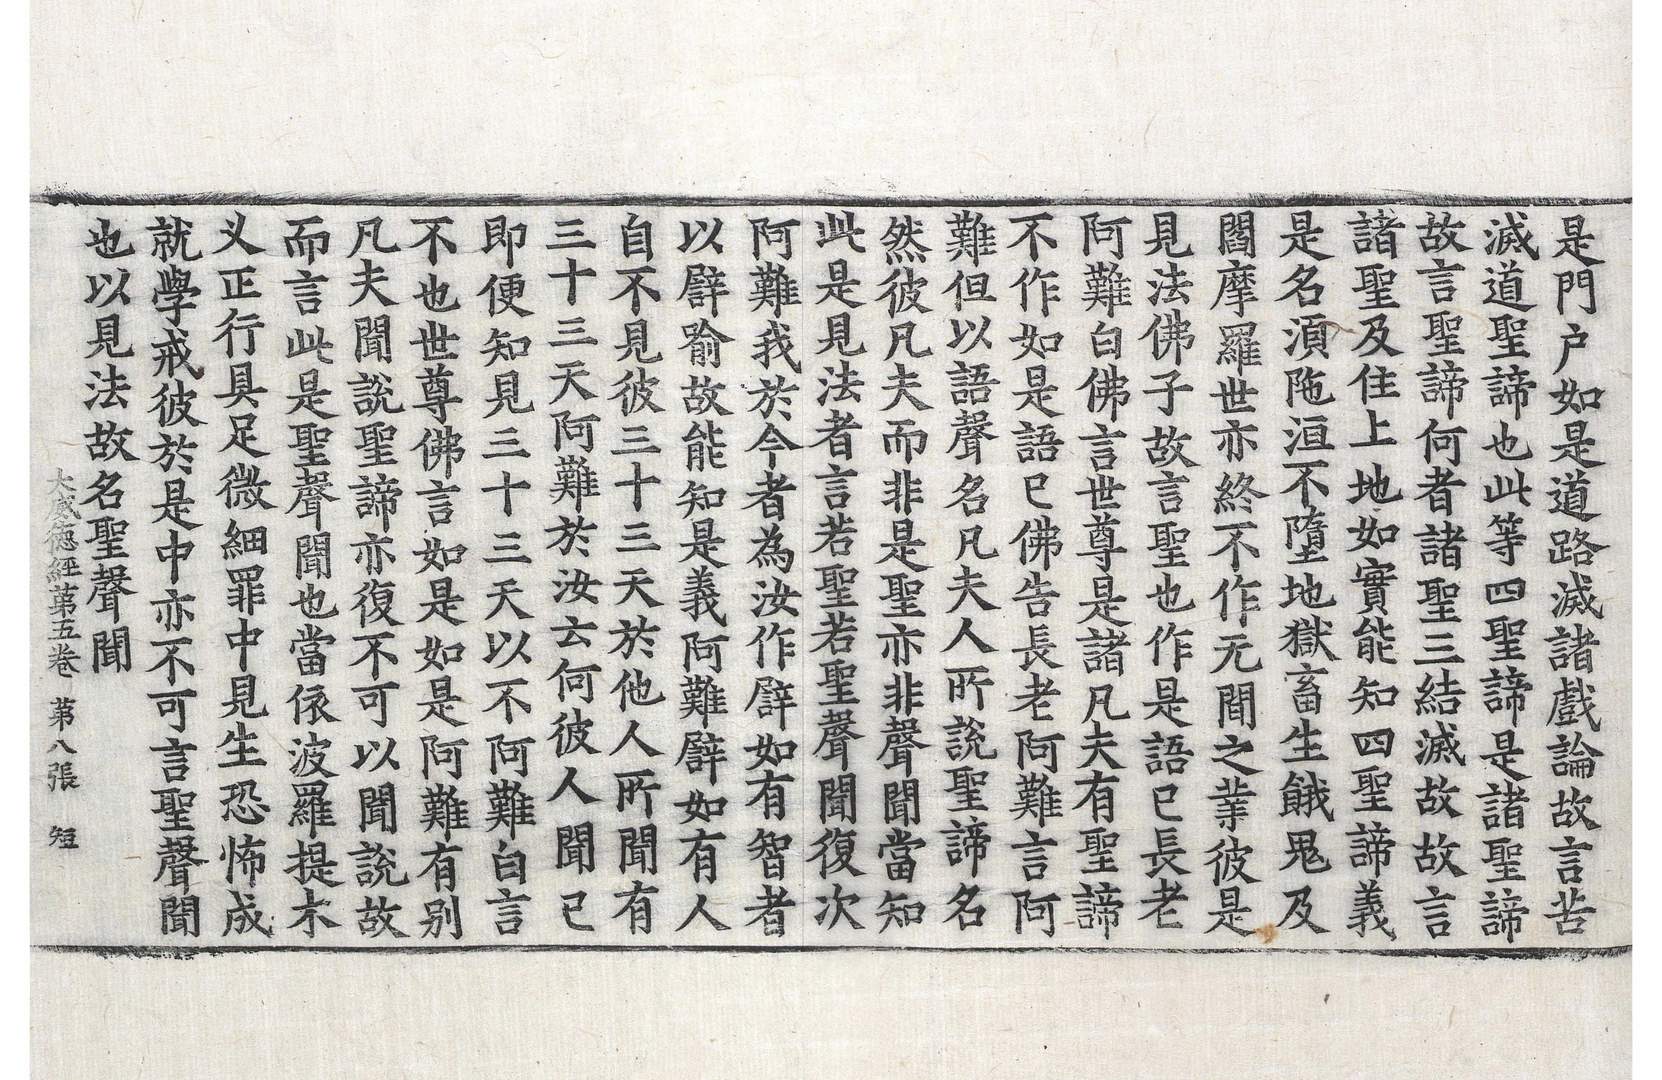 是門户如是道路滅諸戲論故言苦
滅道聖諦也此等四聖諦是諸聖諦
故言聖諦何者諸聖三結滅故故言
諸聖及住上地如實能知四聖諦義
是名湏陁洹不墮地獄畜生餓鬼及
閻摩羅世亦終不作无間之業彼是
見法佛子故言聖也作是語已長老
阿難白佛言世尊是諸凡夫有聖諦
不作如是語已佛告長老阿難言阿
難但以語聲名凡夫人所說聖諦名
然彼凡夫而非是聖亦非聲聞當知
此是見法者言若聖若聖聲聞復次
阿難我於今者為汝作譬如有智者
以譬喻故能知是義阿難譬如有人
自不見彼三十三天於他人所聞有
三十三天阿難於汝云何彼人聞已
即便知見三十三天以不阿難白言
不也世尊佛言如是如是阿難有別
凡夫聞說聖諦亦復不可以聞說故
而言此是聖聲聞也當依波羅提木
义正行具足微細罪中見生恐怖成
就學戒彼於是中亦不可言聖聲聞
也以見法故名聖聲聞
大威德經苐五卷 苐八張 短